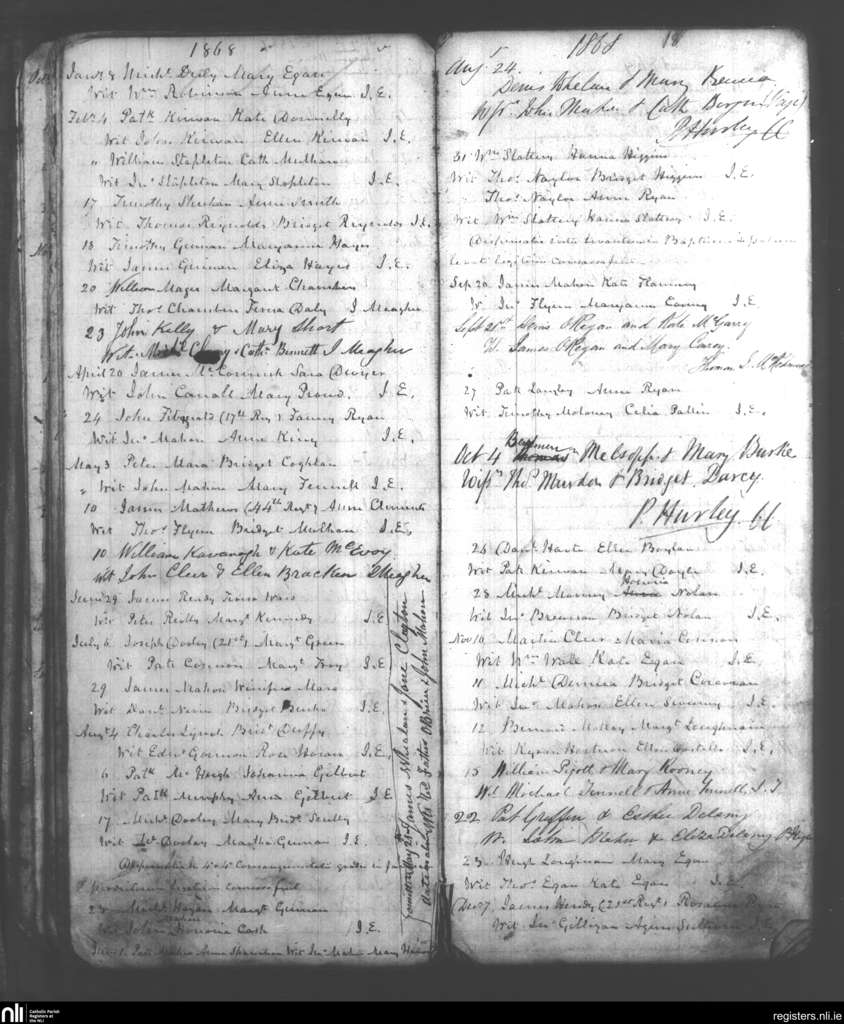 1868
Jany 8 Michl. Daly Mary Egan
Wit Wm Robinson Anne Egan I.E.
Feby 4 Patk Kirwan Kate Donnelly
Wit John Kirwan Ellen Kirwan I.E.
" William Stapleton Cath Mulhan
Wit Jno Stapleton Mary Stapleton I.E.
17 Timothy Sheehan Anne Smith
Wit Thomas Reynolds Bridget Reynolds I.E.
18 Timothy Guinan Maryanne Hayes
Wit James Guinan Eliza Hayes I.E.
20 William Mages Margaret Chambers
Wit Thos Chambers Teresa Daly J Meagher
23 John Kelly & Mary Short
Wit. Michl & Cathe Bennett J Meagher
April 20 James McCormick Sara Dwyer
Wit John Carroll Mary Proud. I.E.
24 John Fitzgerald (17th Reg) Fanny Ryan
Wit Jno Mahon Anne King I.E.
May 3 Peter Mara Bridget Coghlan
" Wit John Mahon Mary Fennell I.E.
10 James Mathews (44th Regt) Anne Clements
Wit Thos Flynn Bridget Mulhan I.E.
10 William Kavanagh & Kate McEvoy
Wit John Cleer & Ellen Bracken J Meagher
June 29 James Ready Teresa Ward
Wit Peter Reilly Margt Kennedy I.E
July 6 Joseph Dooley (21st) Margt Green
Wit Patk Corcoran Margt Troy I.E
29 James Mahon Winifred Mara
Wit Danl Nevin Bridget Burke I.E.
Augt 4 Charles Lynch Bridt Duffy
Wit Edwd Gorman Rose Horan I.E.
6 Patk McHugh Johanna Gilbert
Wit Patk Murphy Anne Gilbert I.E
17 Michl Dooley Mary Bridt Scully
Wit Dooley Martha Guinan I.E.
Dispensatio in 4o & 4o Consanguinitatis gradu
23 Michl Hogan Margt Guinan
Wit John Honoria Cash I.E.
June 1 Patk Mahon Anne Wit Jno Mahon Mary
omitted May 25th James Whealan & Jane Clayton
Father O'Brien & John Mahon
1868 18
Aug 24.
Denis Whelan & Mary Kenna
Wss John Maher & Cath Bergin
P Hurley CC
31 Wm Slattery Hanna Higgins
Wit Thos Naylor Bridget Higgins I.E.
Thos Naylor Anne Ryan
Wit Wm Slattery Hanna Slattery I.E.
Sep 20 James Mahon Kate Flannery
W Jno Flynn Maryanne I.E.
Sept 21st Denis O'Regan and Kate McGarry
W. James O'Regan and Mary Carey.
Thomas J.
27 Patk Langley Anne Ryan
Wit Timothy Moloney Celia I.E.
Oct 4 & Mary Burke
Wss Thos & Bridget Darcy.
P. Hurley. CC
26 Danl Harte Ellen Boylan
Wit Patk Kirwan Mary Doyle I.E.
28 Michl Honoria Nolan
Wit Jno Brennan Bridget Nolan I.E.
Nov 10 Martin Cleer Maria Corcoran
Wit Wm Wall Kate Egan I.E.
10 Michl Bridget Corcoran
Wit Jno Mahon Ellen I.E.
12 Bernard Molloy Margt Loughnan
Wit Kyran Ellen Costello I.E.
15 William Pigott & Mary Rooney
Wit Michael Fennell & Anne
22 Pat Griffin & Esther Delany
W. John Mahon & Eliza Delany
23 Hugh Mary Egan
Wit Thos Egan Kate Egan I.E.
Dec 7 James Hendy (21st Regt)
Wit Jno Gilligan Agnes Sullivan I.E.
nli Catholic Parish
Registers at
the NLI
registers.nli.ie